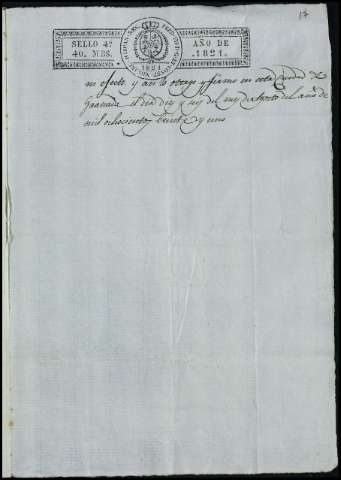 17
SELLO 4º
40. MRS.
AÑO DE
1821.
1821
su efecto y asi lo otorgo y firmo en esta Ciudad de
Granada el dia diez y seis del mes de Agosto del año de
mil ochocientos veinte y uno